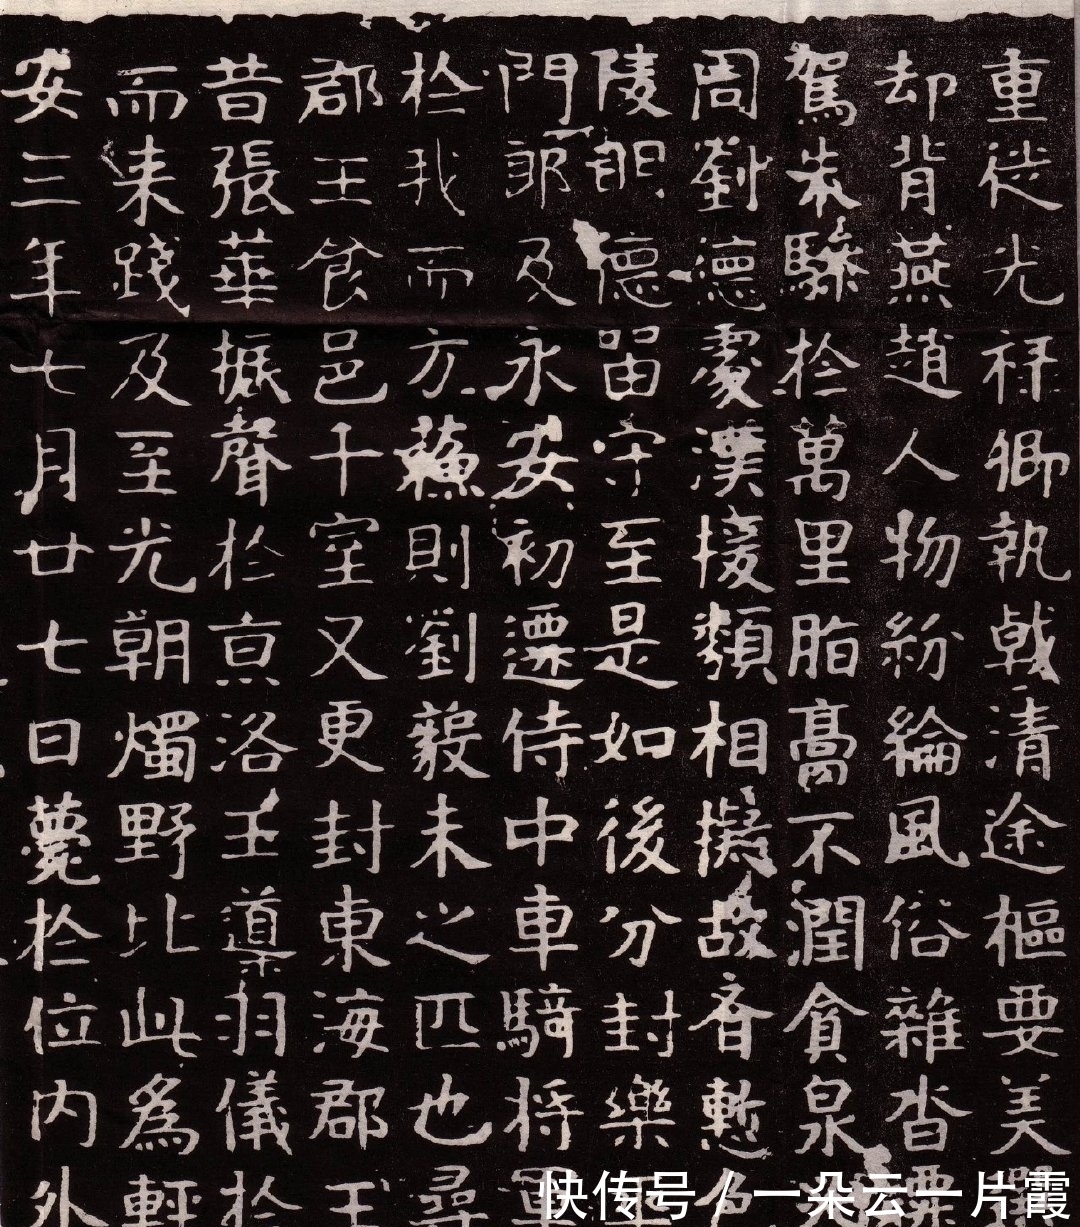 重從光祿卿執戟清途樞要美
却背燕趙人物紛綸風俗雜沓
駕朱驂於萬里脂膏不潤貪泉
周劉德處漢接類相擬故吝慙色
陵朗德留守至是如後分封樂
門郎及永安初遷侍中車騎將軍
於我而方蘇則劉毅未之匹也尋
郡王食邑十室又更封東海郡王
昔張華振聲於京洛王導羽儀於
而來踐及至光朝燭野比此為輕
安三年七月廿七日薨於位內外
快传号 / 一朵云一片霞